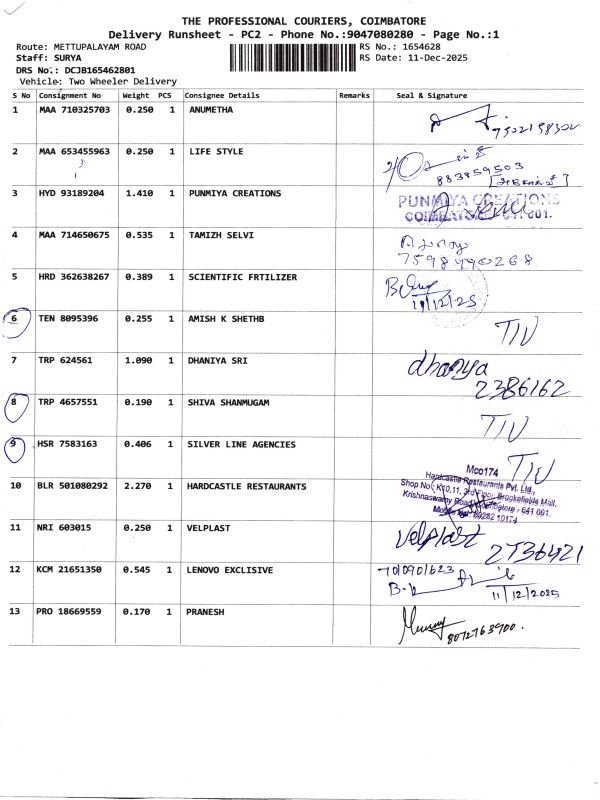 THE PROFESSIONAL COURIERS, COIMBATORE
Delivery Runsheet - PC2 - Phone No.:9047080280 - Page No.:1
Route: METTUPALAYAM ROAD RS No.: 1654628
Staff: SURYA RS Date: 11-Dec-2025
DRS No.: DCJB165462801
Vehicle: Two Wheeler Delivery
S No Consignment No Weight PCS Consignee Details Remarks Seal & Signature
1 MAA 710325703 0.250 1 ANUMETHA
2 MAA 653455963 0.250 1 LIFE STYLE
883859503
3 HYD 93189204 1.410 1 PUNMIYA CREATIONS
PUNMIYA CREATIONS
4 MAA 714650675 0.535 1 TAMIZH SELVI
7598490268
5 HRD 362638267 0.389 1 SCIENTIFIC FRTILIZER
11/12/25
6 TEN 8095396 0.255 1 AMISH K SHETHB
TIV
7 TRP 624561 1.090 1 DHANIYA SRI
dhanya
2386162
8 TRP 4657551 0.190 1 SHIVA SHANMUGAM
TIV
9 HSR 7583163 0.406 1 SILVER LINE AGENCIES
TIV
10 BLR 501080292 2.270 1 HARDCASTLE RESTAURANTS
Mco174
Hardcastle Restaurants Pvt. Ltd.,
Shop No K10,11, 3rd Floor, Brookefields Mall,
Krishnaswamy Road, Coimbatore - 641 001.
11 NRI 603015 0.250 1 VELPLAST
Velplast
2736421
12 KCM 21651350 0.545 1 LENOVO EXCLISIVE
7010901623
11/12/2025
13 PRO 18669559 0.170 1 PRANESH
8072763900.